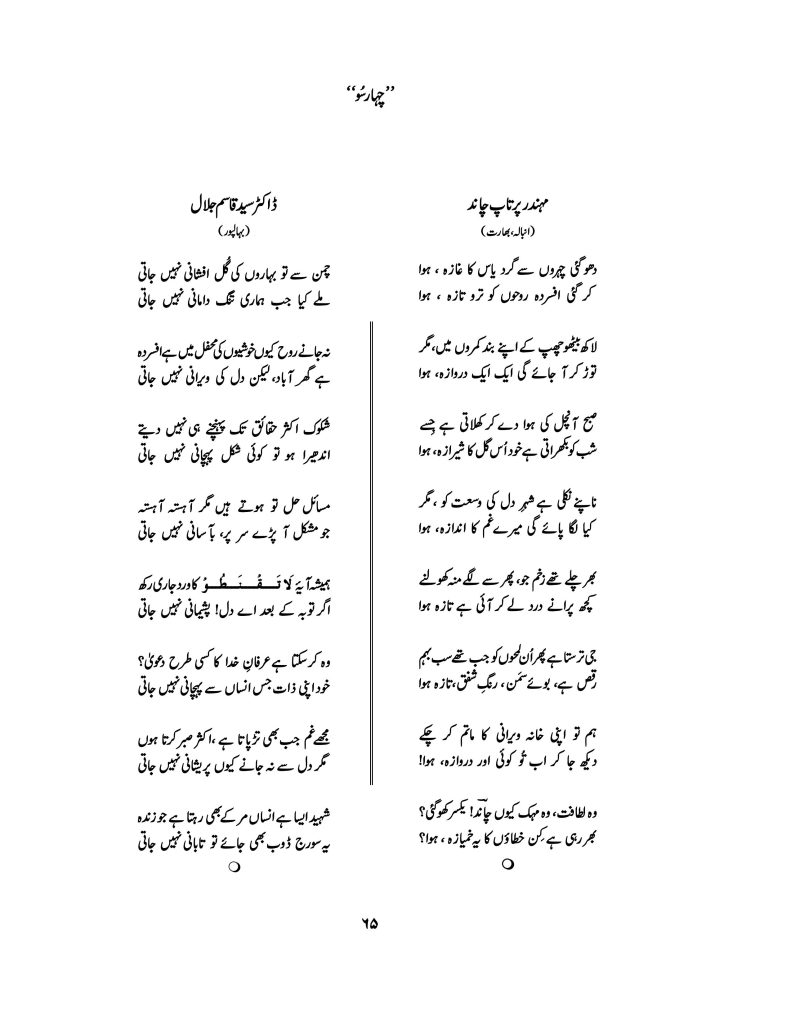 ’’چہارسُو‘‘
مہندر پرتاپ چاند
(انبالہ، بھارت)
دھو گئی چہروں سے گرد یاس کا غازہ ، ہوا
کر گئی افسردہ روحوں کو تر و تازہ ، ہوا
لاکھ بیٹھو چھپ کے اپنے بند کمروں میں، مگر
توڑ کر آ جائے گی ایک ایک دروازہ، ہوا
صبح آنچل کی ہوا دے کر کھلاتی ہے جِسے
شب کو بکھراتی ہے خود اُس گل کا شیرازہ، ہوا
ناپنے نکلی ہے شہرِ دل کی وسعت کو ، مگر
کیا لگا پائے گی میرے غم کا اندازہ، ہوا
بھر چلے تھے زخم جو، پھر سے لگے منہ کھولنے
کچھ پرانے درد لے کر آئی ہے تازہ ہوا
جی ترستا ہے پھر اُن لمحوں کو جب تھے سب بہم
رقص ہے، بوئے سمَن ، رنگِ شفق، تازہ ہوا
ہم تو اپنی خانہ ویرانی کا ماتم کر چکے
دیکھ جا کر اب تُو کوئی اور دروازہ، ہوا!
وہ لطافت، وہ مہک کیوں چاند! یکسر کھو گئی؟
بھر رہی ہے کِن خطاؤں کا یہ خمیازہ ، ہوا؟
ڈاکٹر سید قاسم جلال
(بہالپور)
چمن سے تو بہاروں کی گُل افشانی نہیں جاتی
ملے کیا جب ہماری تنگ دامانی نہیں جاتی
نہ جانے روح کیوں خوشیوں کی محفل میں ہے افسردہ
ہے گھر آباد، لیکن دل کی ویرانی نہیں جاتی
شکوک اکثر حقائق تک پہنچنے ہی نہیں دیتے
اندھیرا ہو تو کوئی شکل پہچانی نہیں جاتی
مسائل حل تو ہوتے ہیں مگر آہستہ آہستہ
جو مشکل آ پڑے سر پر، بآسانی نہیں جاتی
ہمیشہ آیۂ لَا تَـقْـنَـطُـوْ کا ورد جاری رکھ
اگر توبہ کے بعد اے دل! پشیمانی نہیں جاتی
وہ کر سکتا ہے عرفانِ خدا کا کسی طرح دعویٰ؟
خود اپنی ذات جس انساں سے پہچانی نہیں جاتی
مجھے غم جب بھی تڑپاتا ہے ،اکثر صبر کرتا ہوں
مگر دل سے نہ جانے کیوں پریشانی نہیں جاتی
شہید ایسا ہے انساں مر کے بھی رہتا ہے جو زندہ
یہ سورج ڈوب بھی جائے تو تابانی نہیں جاتی
۶۵